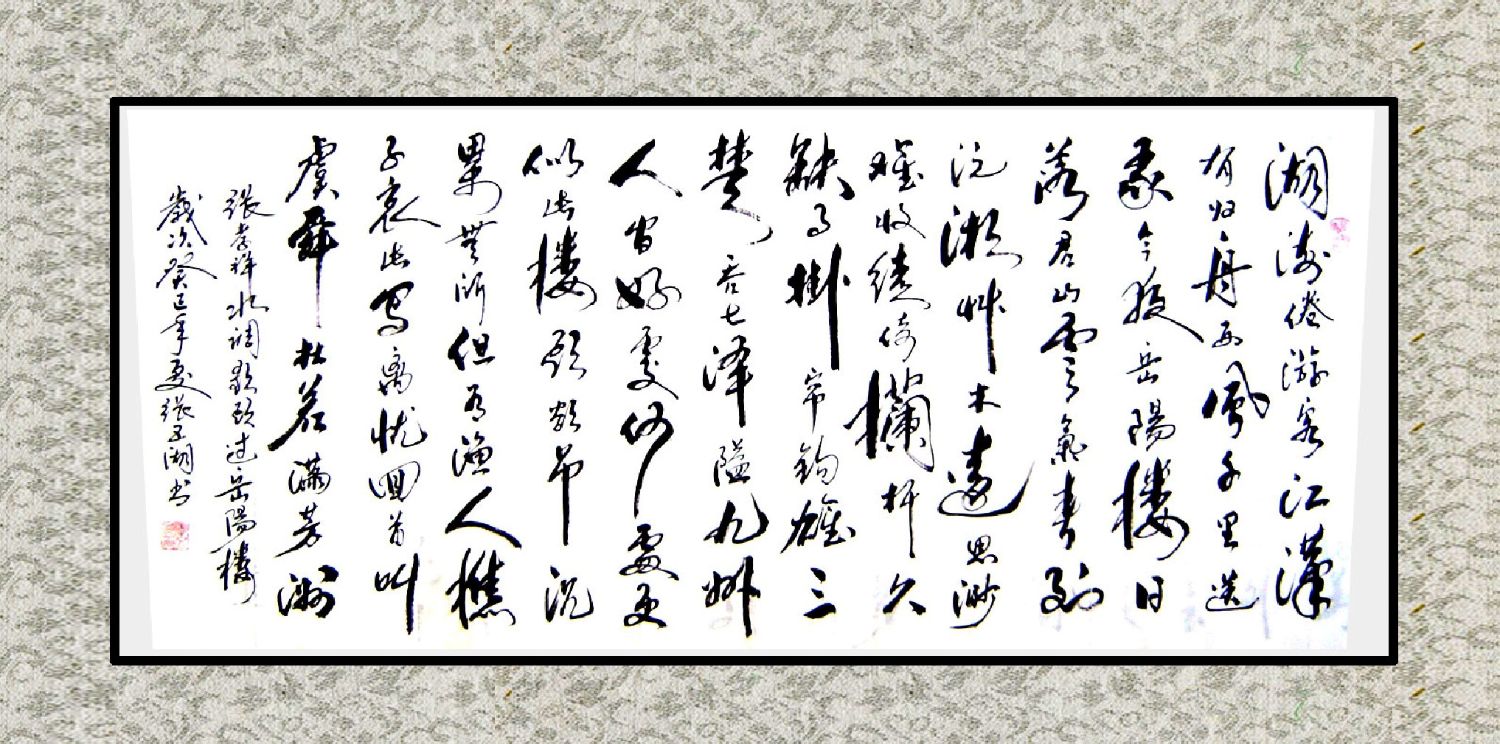 湖海倦游客江漢
有归舟西風千里送
我今夜岳陽楼日
落君山雲氣春到
沅湘艸木遠思渺
難收倚欄杆久
缺月掛帘鈎雄三
楚吞七澤隘九州
人间好處何處更
似此楼頭欲吊沉
累無所但有漁人樵
子哀此寫離忧回首叫
虞舜杜若滿芳洲
張孝祥水调歌頭过岳陽楼
歲次癸巳年夏張玉湖书